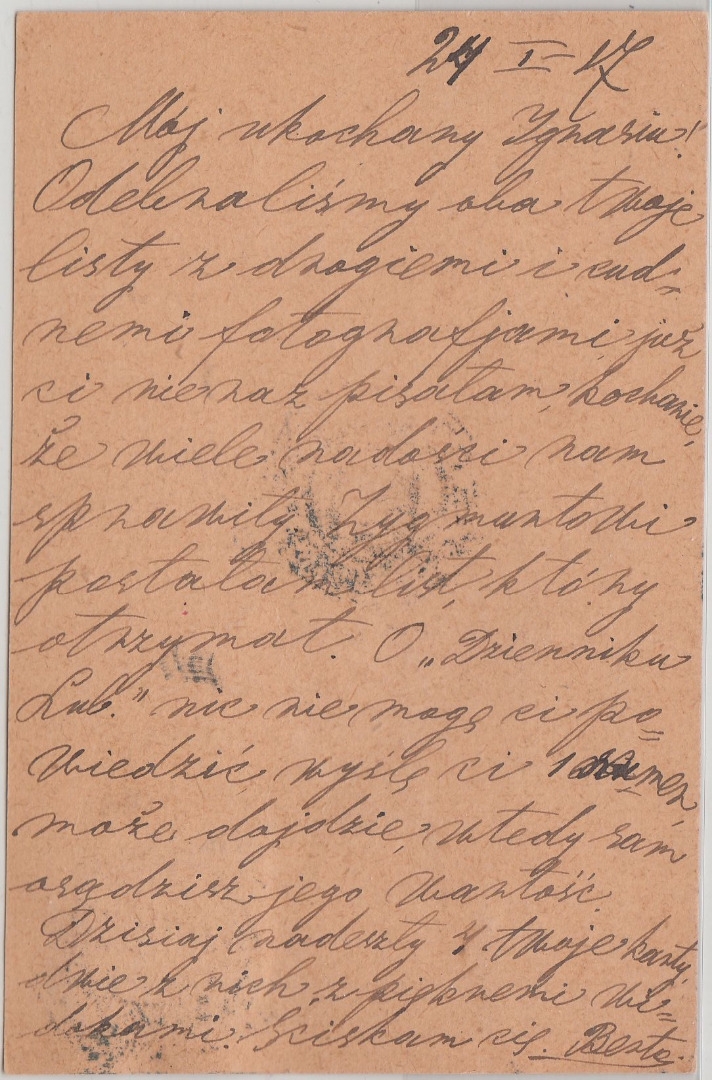 24 I 17
Mój ukochany Ignasiu!
Odebraliśmy oba twoje
listy z drogiemi i cud-
nemi fotografjami, już
ci nieraz pisałam, kochanie,
że wiele radości nam
sprawiły. Zygmuntowi
posłałam list, który
otrzymał. O „Dzienniku
Lub." nic nie mogę ci po=
wiedzić, wyślę ci 1 nu=mer,
może dojdzie, wtedy sam
osądzisz jego wartość.
Dzisiaj nadeszły 4 twoje karty,
dwie z nich z pięknemi wi=
dokami. Ściskam cię. Berta.